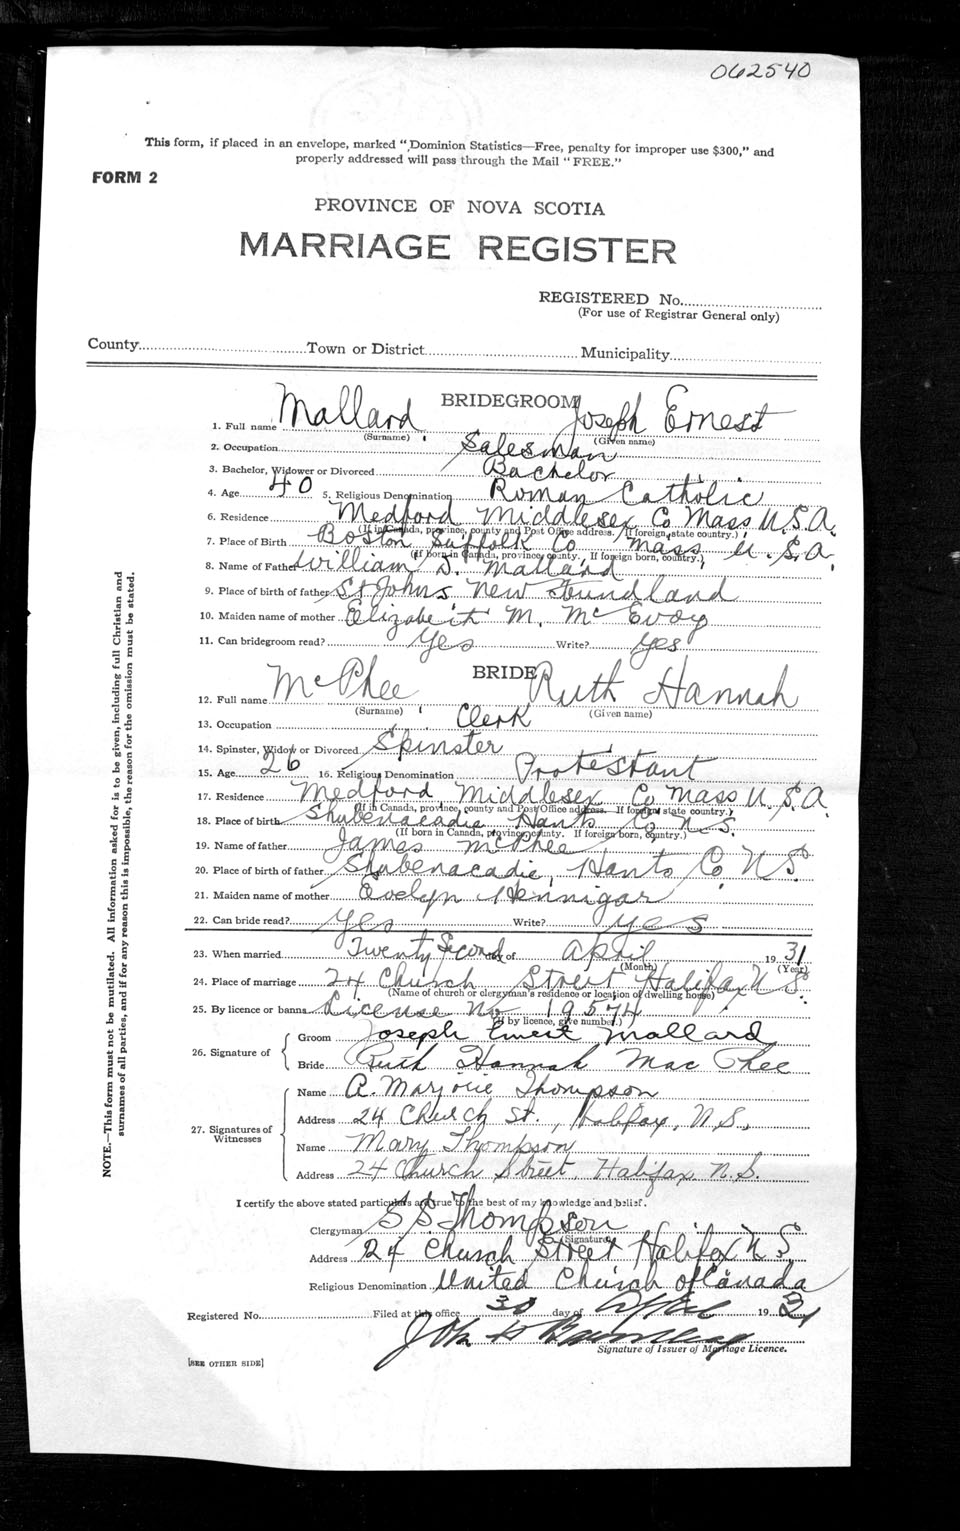 062540
This form, if placed in an envelope, marked "Dominion Statistics—Free, penalty for improper use $300," and
properly addressed will pass through the Mail "FREE."
FORM 2
PROVINCE OF NOVA SCOTIA
MARRIAGE REGISTER
REGISTERED No.
(For use of Registrar General only)
County Town or District Municipality
BRIDEGROOM
1. Full name Mallard Joseph Ernest
(Surname) (Given name)
2. Occupation Salesman
3. Bachelor, Widower or Divorced Bachelor
4. Age 40 5. Religious Denomination Roman Catholic
6. Residence Medford Middlesex Co Mass U.S.A.
(If in Canada, province, county and Post Office address. If foreign, state country.)
7. Place of Birth Boston Suffolk Co Mass U.S.A.
(If born in Canada, province, county. If foreign born, country.)
8. Name of Father William S. Mallard
9. Place of birth of father St Johns New Foundland
10. Maiden name of mother Elizabeth M. McEvoy
11. Can bridegroom read? Yes Write? Yes
BRIDE
12. Full name McPhee Ruth Hannah
(Surname) (Given name)
13. Occupation Clerk
14. Spinster, Widow or Divorced Spinster
15. Age 26 16. Religious Denomination Protestant
17. Residence Medford Middlesex Co Mass U.S.A
(If in Canada, province, county and Post Office address. If foreign state country.)
18. Place of birth Shubenacadie Hants Co N.S.
(If born in Canada, province, county. If foreign born, country.)
19. Name of father James McPhee
20. Place of birth of father Shubenacadie, Hants Co NS
21. Maiden name of mother Evelyn Hennigar
22. Can bride read? Yes Write? Yes
23. When married Twenty Second of April 1931
(Month) (Year)
24. Place of marriage 24 Church Street Halifax N.S.
(Name of church or clergyman's residence or location of dwelling house)
25. By licence or banns License No 19574
(If by licence, give number.)
26. Signature of
Groom Joseph Ernest Mallard
Bride Ruth Hannah MacPhee
27. Signatures of Witnesses
Name A. Marjorie Thompson
Address 24 Church St., Halifax, N.S.,
Name Mary Thompson
Address 24 Church Street, Halifax N.S.
I certify the above stated particulars are true to the best of my knowledge and belief.
Clergyman S S Thompson
(Signature)
Address 24 Church Street Halifax N.S.
Religious Denomination United Church of Canada
Registered No. Filed at this office 30 day of April 1931
Signature of Issuer of Marriage Licence.
[SEE OTHER SIDE]
NOTE.—This form must not be mutilated. All information asked for is to be given, including full Christian and
surnames of all parties, and if for any reason this is impossible, the reason for the omission must be stated.